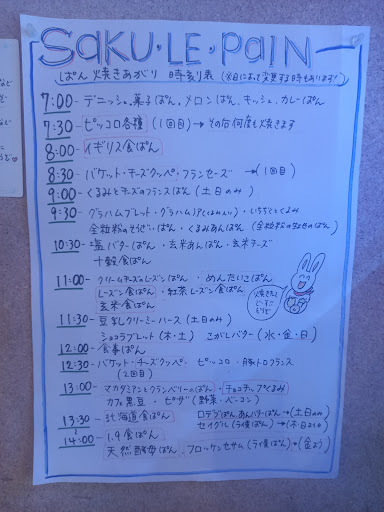 SaKU・LE・PaiN
ぱん 焼きあがり 時刻表 (※日によって変更する時もあります!)
7:00- デニッシュ。菓子ぱん。メロンぱん、キッシュ、カレーぱん
7:30- ピッコロ各種 (1回目)→その后何度も焼きます
8:00- イギリス食ぱん
8:30- バケット・チーズクッペ・フランセーズ →(1回目)
9:00- くるみとチーズのフランスぱん (土日のみ)
9:30- グラハムブレット・グラハム・いちじくとくるみ
全粒粉のそぜじぱん・くるみあんぱん
10:30- 塩バターぱん・玄米あんぱん・玄米チーズ
十穀食ぱん
11:00- クリームチーズのレーズンぱん ・めんたいこぱん
レーズン食ぱん・紅茶レーズン食ぱん
玄米食ぱん
焼きたて
どーぞ
11:30- 豆乳クリーミーハース (土日のみ)
ショコラブレット (木・土) こがしバター (水・金・日)
12:00- 食事ぱん
12:30- バケット・チーズクッペ ピッコロ・豚トロフランス
(2回目)
13:00- マカダミアンとクランベリーのぱん・チョコチップとくるみ
カフェ黒豆・ピザ (野菜・ベーコン)
13:30- 北海道食ぱん ロデヴぱん →(土日のみ)
セイグル(ライ麦ぱん)
14:00- 1.9食ぱん
天然酵母ぱん フロッケンセサム (ライ麦ぱん)